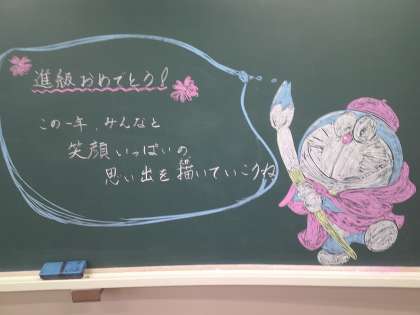 進級おめでとう!
この一年、みんなと
笑顔いっぱいの
思い出を描いていこうね